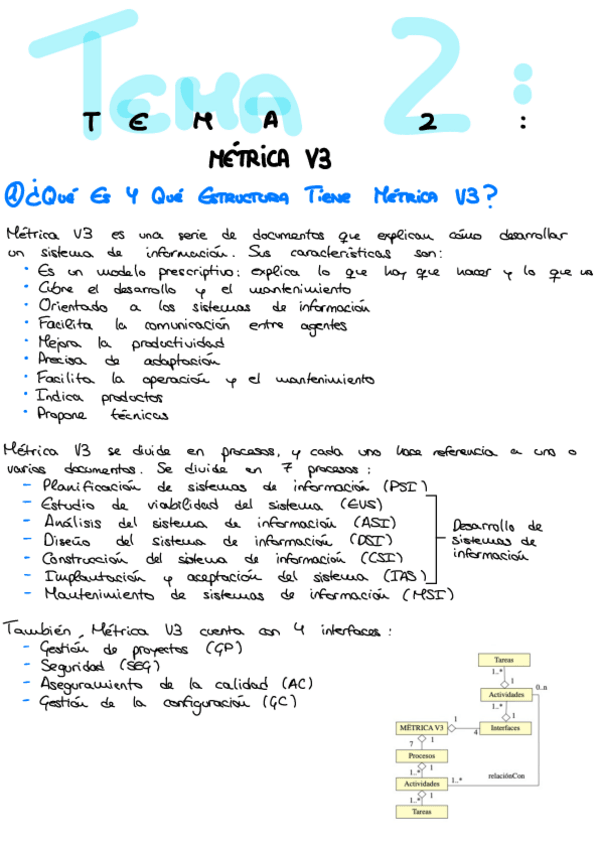 Tema 2:
T E M A 2 :
MÉTRICA V3
① ¿Qué Es Y Qué Estructura Tiene Métrica V3?
Métrica V3 es una serie de documentos que explican cómo desarrollar
un sistema de información. Sus características son:
· Es un modelo prescriptivo: explica lo que hay que hacer y lo que no
· Cubre el desarrollo y el mantenimiento
· Orientado a los sistemas de información
· Facilita la comunicación entre agentes
· Mejora la productividad
· Precisa de adaptación
· Facilita la operación y el mantenimiento
· Indica productos
· Propone técnicas
Métrica V3 se divide en procesos, y cada uno hace referencia a uno o
varios documentos. Se divide en 7 procesos:
- Planificación de sistemas de información (PSI)
- Estudio de viabilidad del sistema (EVS)
- Análisis del sistema de información (ASI)
- Diseño del sistema de información (DSI)
- Construcción del sistema de información (CSI)
- Implantación y aceptación del sistema (IAS)
- Mantenimiento de sistemas de información (MSI)
Desarrollo de
sistemas de
información
También, Métrica V3 cuenta con 4 interfaces:
- Gestión de proyectos (GP)
- Seguridad (SEG)
- Aseguramiento de la calidad (AC)
- Gestión de la configuración (GC)
Tareas
1..*
1
Actividades
0..n
1..*
1
MÉTRICA V3
1
4
Interfaces
7
1
Procesos
1..*
1
Actividades
1..*
relaciónCon
1..*
1
Tareas